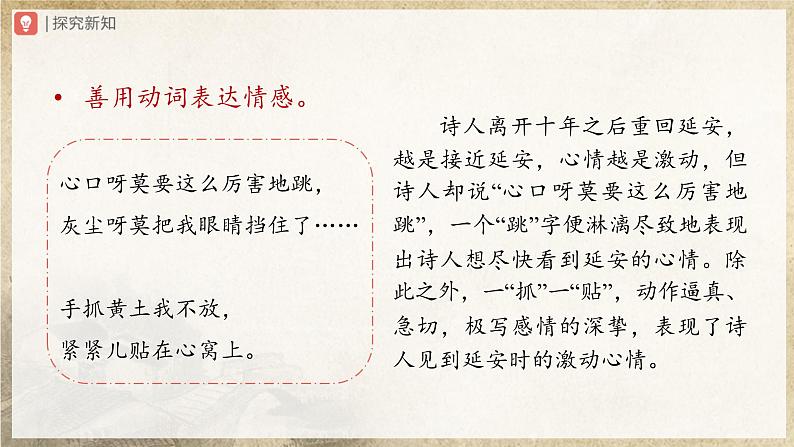 | 探究新知
• 善用动词表达情感。
心口呀莫要这么厉害地跳，
灰尘呀莫把我眼睛挡住了……
手抓黄土我不放，
紧紧儿贴在心窝上。
诗人离开十年之后重回延安，
越是接近延安，心情越是激动，但
诗人却说“心口呀莫要这么厉害地
跳”，一个“跳”字便淋漓尽致地表现
出诗人想尽快看到延安的心情。除
此之外，一“抓”一“贴”，动作逼真、
急切，极写感情的深挚，表现了诗
人见到延安时的激动心情。